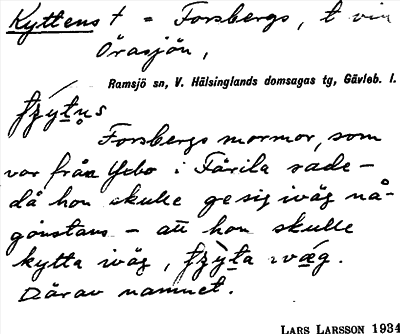 Kyttens t = Forsbergs, t vin
Örasjön,
Ramsjö sn, V. Hälsinglands domsagas tg, Gävleb. l.
Forsbergs mormor, som
var från Ybo i Färila sade –
då hon skulle ge sig iväg nå-
gonstans – att hon skulle
kytta iväg,
Därav namnet.
LARS LARSSON 1934